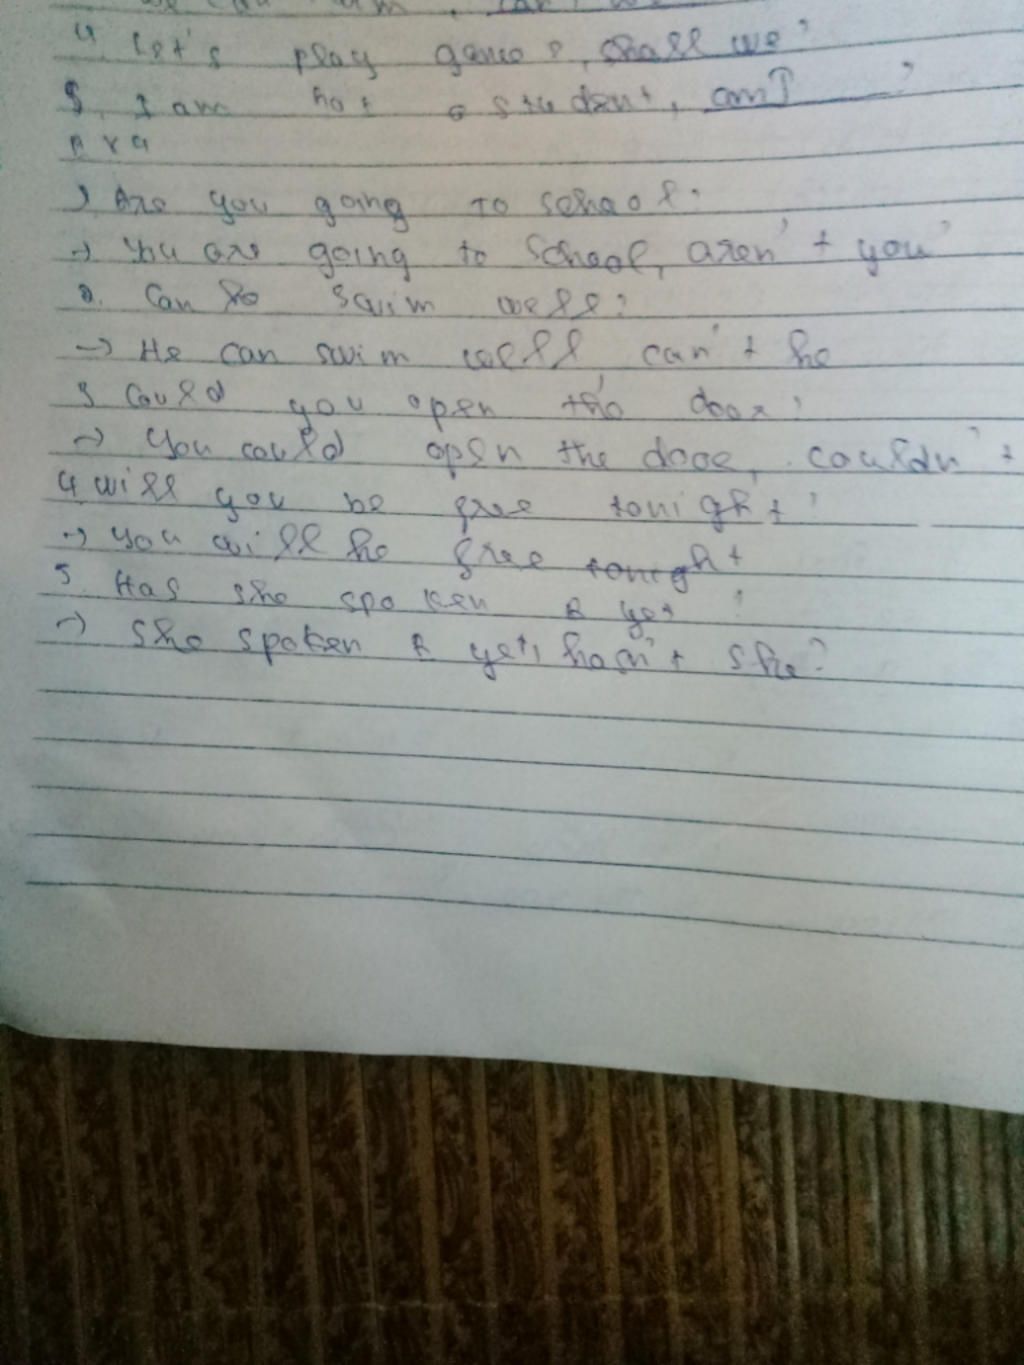 4 Let's play games, shall we?
5. I am not a student, am I ?
1. Are you going to school?
→ You are going to school, aren't you?
2. Can he swim well?
→ He can swim well can't he
3 Could you open the door?
→ You could open the door, couldn't
4 will you be free tonight?
→ you will be free tonight
5. Has she spoken yet?
→ She spoken yet, hasn't she?